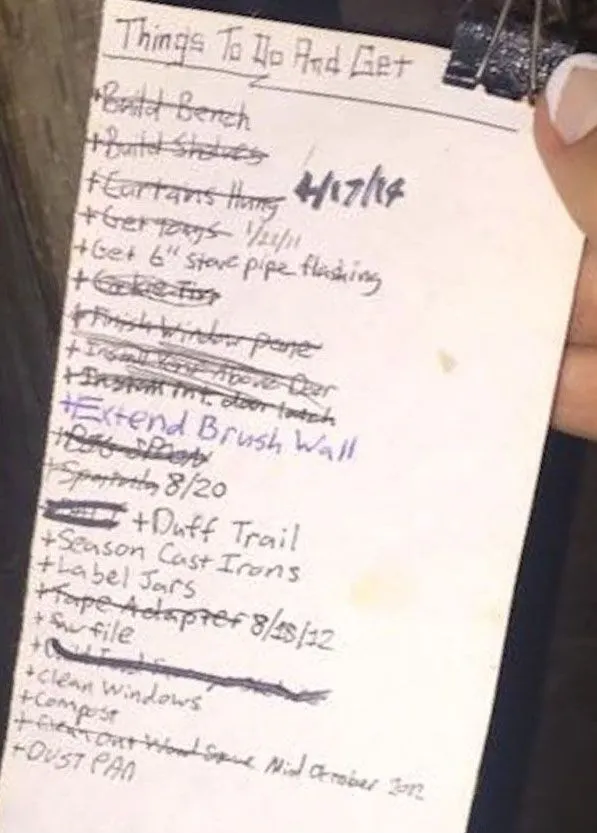 Things To Do And Get
+Build Bench
+Build Shelves
+Curtains Hung 4/17/14
+Get Tongs 1/22/11
+Get 6" stove pipe flashing
+Cookie Tin
+Finish Window pane
+Install Above Door
+Install int. door latch
+Extend Brush Wall
+
+Spanish 8/20
+Duff Trail
+Season Cast Irons
+Label Jars
+Tape Adapter 8/18/12
+Saw file
+
+Clean Windows
+Compost
+Clean Out Wood Stove Mid October 2012
+DUST PAN